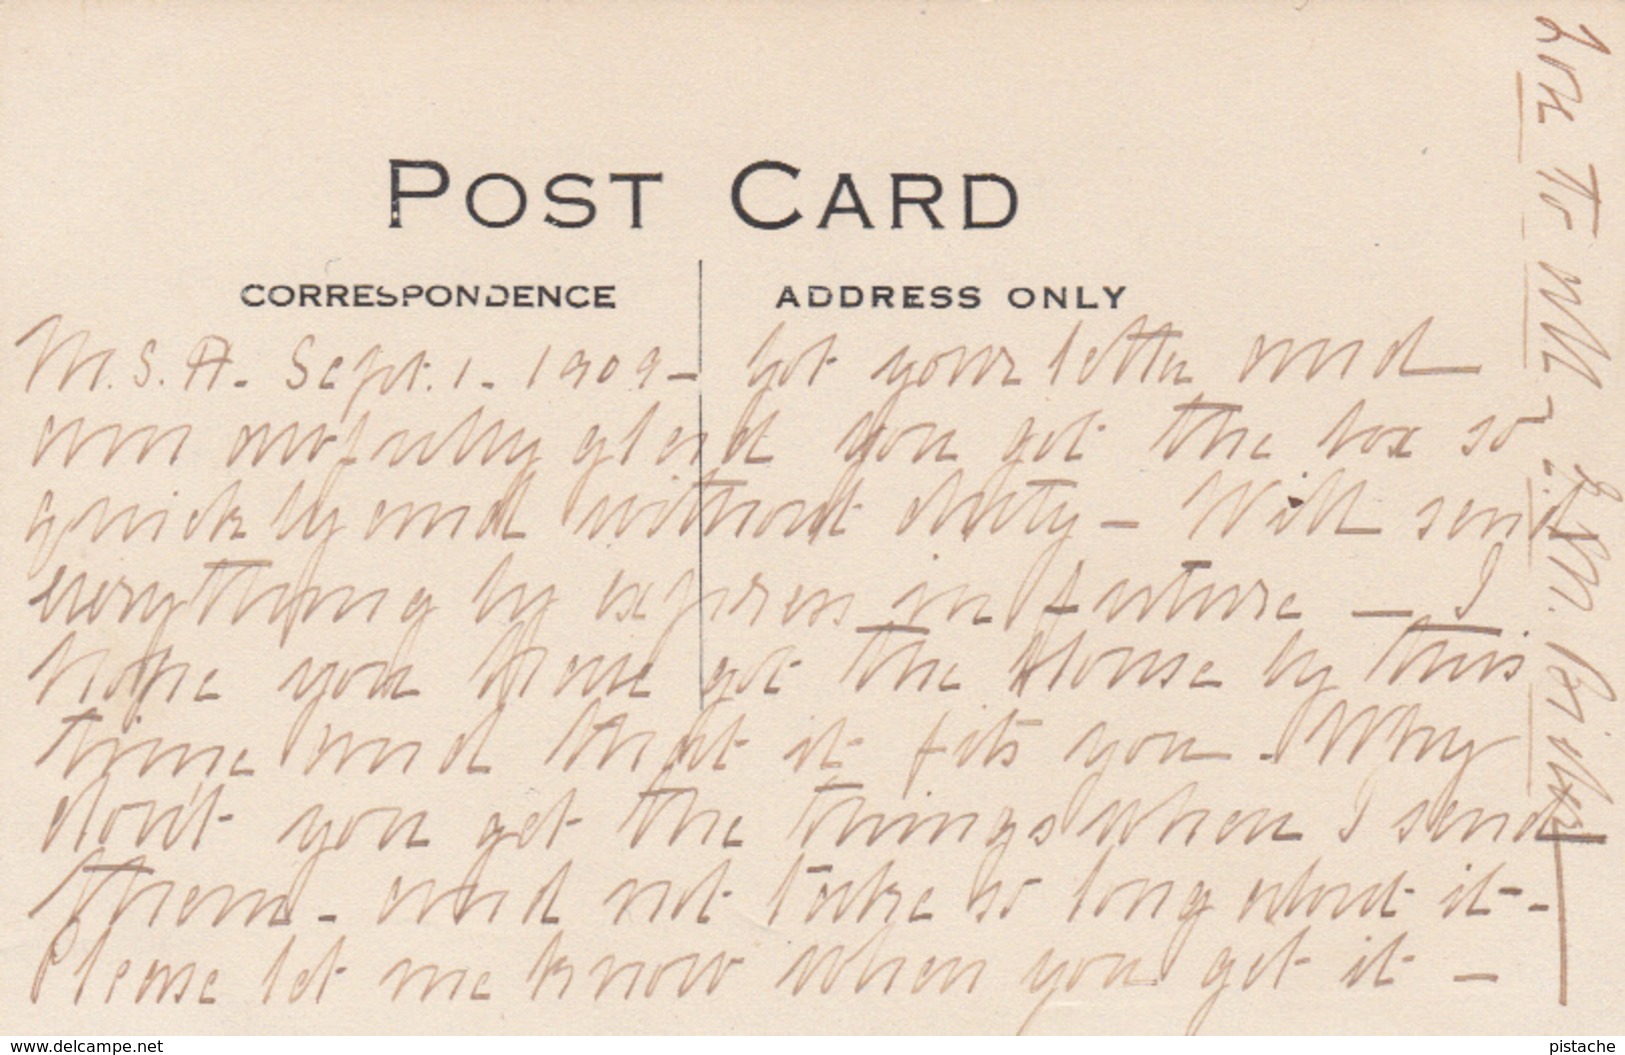 POST CARD
CORRESPONDENCE ADDRESS ONLY
M.S.A. Sept. 1. 1909 - Got your letter and
am awfully glad you got the box so
quickly and without duty - Will send
everything by express in future - I
hope you have got the blouse by this
time and that it fits you. Why
don't you get the things when I send
them - and not take so long about it -
Please let me know when you get it -
to
www.delcampe.net
pistache